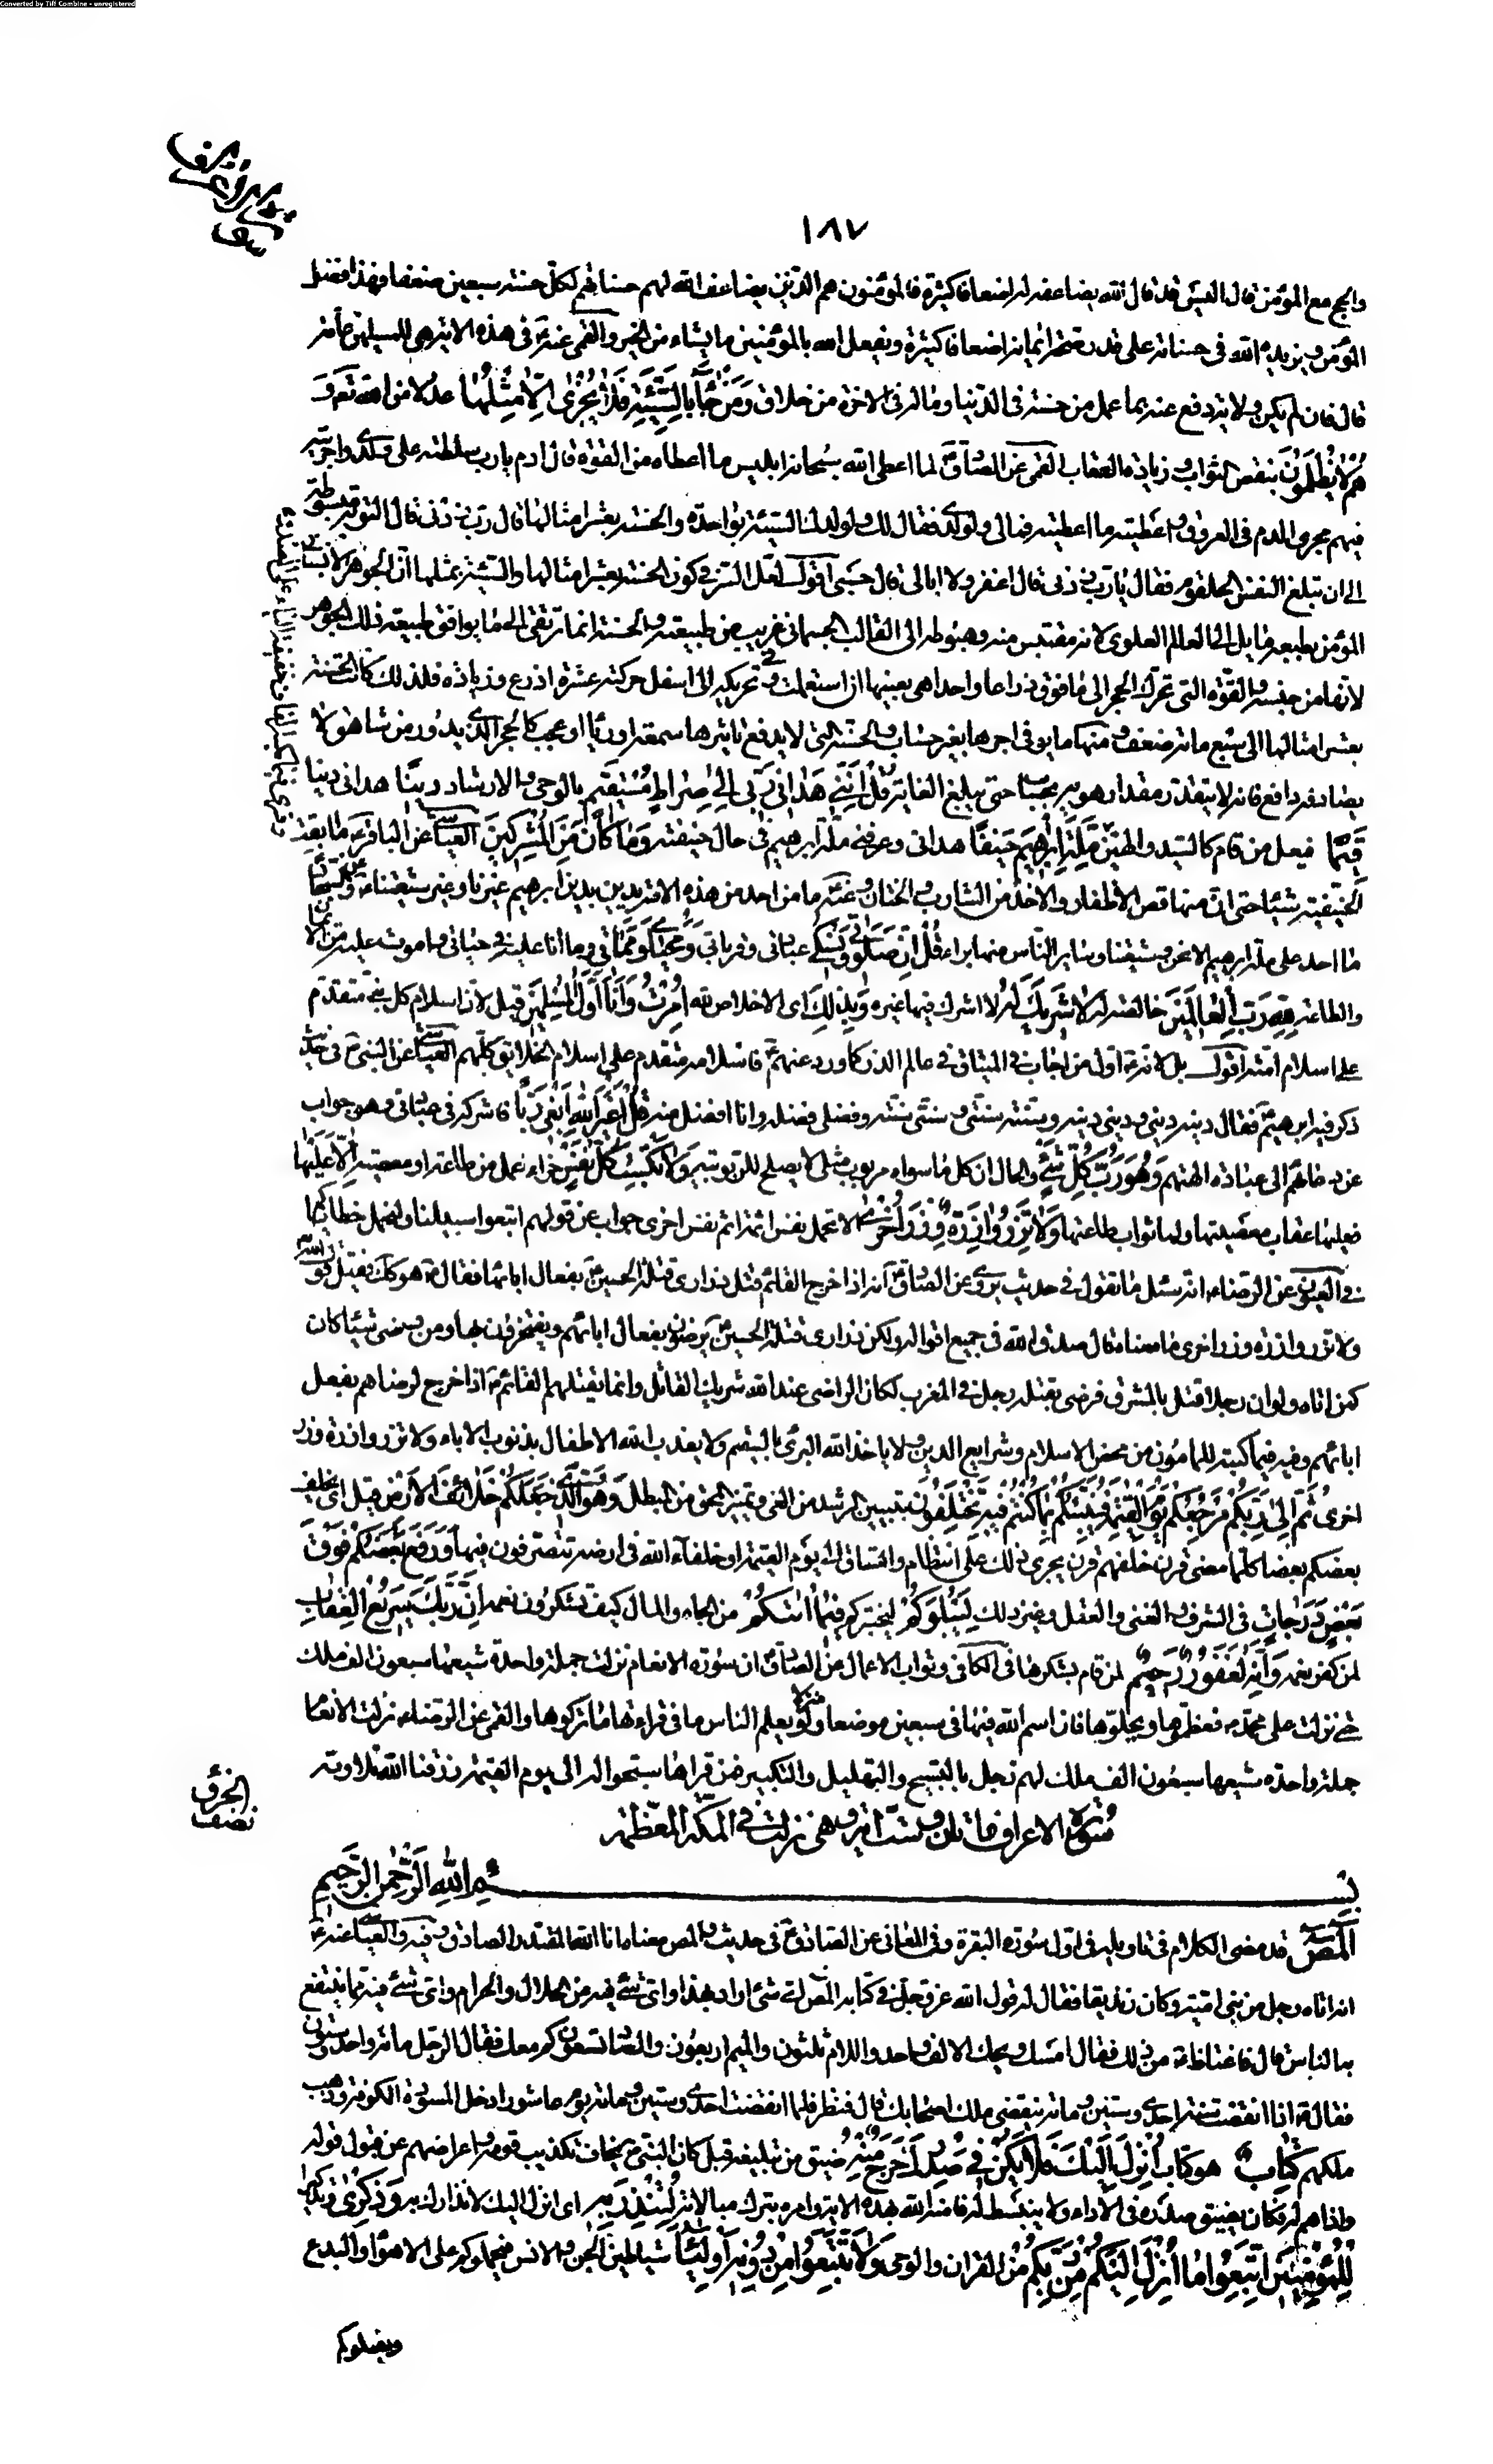 Converted by Tiff Combine - unregistered
١٨٧
والحج مع المؤمن قال اليس قد قال الله يضاعفه له اضعافا كثيرة فالمؤمنون هم الذين يضاعف الله لهم حسناتهم لكل حسنة سبعين ضعفا فهذا فضل
المؤمن ويزيده الله في حسناته على قدر صحة ايمانه اضعافا كثيرة ويفعل الله بالمؤمنين ما يشاء من الخير والقمي عنه ع في هذه الاية هي للمسلمين عامة
قال فان لم يكن ولاية دفع عنه بما عمل من حسنة في الدنيا وما له في الاخرة من خلاق وَمَنْ جٰاءَ بِالسَّيِّئَةِ فَلاٰ يُجْزىٰ اِلاّٰ مِثْلَهٰا عدلا من الله تع وَ
هُمْ لاٰ يُظْلَمُونَ بنقص الثواب وزيادة العقاب القمي عن الصادق ع لما اعطى الله سبحانه ابليس ما اعطاه من القوة قال ادم يا رب سلطته على ولدي واجريته
فيهم مجرى الدم في العروق واعطيته ما اعطيته فما لي ولولدي فقال لك ولولدك السيئة بواحدة والحسنة بعشر امثالها قال رب زدني قال التوبة مبسوطة
الى ان تبلغ النفس الحلقوم فقال يا رب زدني قال اغفر ولا ابالي قال حسبي اقول لعل السر في كون الحسنة بعشر امثالها والسيئة بمثلها ان الجوهر الانساني
المؤمن بطبعه مايل الى العالم العلوي لانه مقتبس منه وهبوطه الى القالب الجسماني غريب من طبيعته والحسنة انما ترتقي الى ما يوافق طبيعة ذلك الجوهر
لانها من جنسه والقوة التي تحرك الحجر الى ما فوق ذراعا واحدا هي بعينها ان استعملت في تحريكه الى اسفل حركته عشرة اذرع وزيادة فلذلك كانت الحسنة
بعشر امثالها الى سبع مائة ضعف ومنها ما يوفى اجرها بغير حساب والحسنة التي لا يدفع تاثيرها سمعة او رياء او عجب كالحجر الذي يدور من شاهق لا
يصادفه دافع فانه لا يتقدر مقدار هويه بحساب حتى تبلغ الغاية قُلْ اِنَّنِي هَدٰانِي رَبِّي اِلىٰ صِرٰاطٍ مُسْتَقِيمٍ بالوحي والارشاد دِينًا هداني دينا
قِيَمًا فيعل من قام كالسيد والهين مِلَّةَ اِبْرٰاهِيمَ حَنِيفًا هداني وعرفني ملة ابرهيم في حال حنيفته وَمٰا كٰانَ مِنَ الْمُشْرِكِينَ العياشي عن الباقر ع ما ابقت
الحنيفية شيئا حتى ان منها قص الاظفار والاخذ من الشارب والختان وعنه ع ما من احد من هذه الامة يدين بدين ابرهيم غيرنا وغير شيعتنا وعن السجاد
ما احد على ملة ابرهيم الا نحن وشيعتنا وساير الناس منها براء قُلْ اِنَّ صَلاٰتِي وَنُسُكِي عباداتي وقرباتي وَمَحْيٰايَ وَمَمٰاتِي وما انا عليه في حياتي واموت عليه من الايمان
والطاعة لِلّٰهِ رَبِّ الْعٰالَمِينَ خالصة له لاٰ شَرِيكَ لَهُ لا اشرك فيها غيره وَبِذٰلِكَ اي الاخلاص لله اُمِرْتُ وَاَنَا اَوَّلُ الْمُسْلِمِينَ قيل لان اسلام كل نبي متقدم
على اسلام امته اقول بل لانه ص اول من اجاب في الميثاق في عالم الذر كما ورد عنهم ع فاسلامه متقدم على اسلام الخلايق كلهم العياشي عن النبي ص في حديث
ذكر فيه ابرهيم ع فقال دينه ديني وديني دينه وسنته سنتي وسنتي سنته وفضلي فضله وانا افضل منه قُلْ اَغَيْرَ اللّٰهِ اَبْغِي رَبًّا فاشركه في عبادتي وهو جواب
عن دعائهم الى عبادة الهتهم وَهُوَ رَبُّ كُلِّ شَيْءٍ والحال ان كل ما سواه مربوب مثلي لا يصلح للربوبية وَلاٰ تَكْسِبُ كُلُّ نَفْسٍ جزاء عمل من طاعة او معصية اِلاّٰ عَلَيْهٰا
فعليها عقاب معصيتها ولها ثواب طاعتها وَلاٰ تَزِرُ وٰازِرَةٌ وِزْرَ اُخْرىٰ لا تحمل نفس اثمة اثم نفس اخرى جواب عن قولهم اتبعوا سبيلنا ولنحمل خطاياكم
في العيون عن الرضاء ع انه سئل ما تقول في حديث يروى عن الصادق ع انه اذا خرج القائم قتل ذراري قتلة الحسين ع بفعال ابائها فقال ع هو كك فقيل قول الله
ولا تزر وازرة وزر اخرى ما معناه قال صدق الله في جميع اقواله ولكن ذراري قتلة الحسين ع يرضون بفعال ابائهم ويفتخرون بها ومن رضي شيئا كان
كمن اتاه ولو ان رجلا قتل بالمشرق فرضي بقتله رجل في المغرب لكان الراضي عند الله شريك القاتل وانما يقتلهم القائم ع اذا خرج لرضاهم بفعل
ابائهم وفيه فيما كتبه للمامون من محض الاسلام وشرايع الدين ولا ياخذ الله البرئ بالسقيم ولا يعذب الله الاطفال بذنوب الاباء ولا تزر وازرة وزر
اخرى ثُمَّ اِلىٰ رَبِّكُمْ مَرْجِعُكُمْ يوم القيمة فَيُنَبِّئُكُمْ بِمٰا كُنْتُمْ فِيهِ تَخْتَلِفُونَ بتبيين الرشد من الغي وتمييز المحق من المبطل وَهُوَ الَّذِي جَعَلَكُمْ خَلاٰئِفَ الْاَرْضِ قيل اي يخلف
بعضكم بعضا كلما مضى قرن خلفهم قرن يجري ذلك على انتظام واتساق الى يوم القيمة او خلفاء الله في ارضه تتصرفون فيها وَرَفَعَ بَعْضَكُمْ فَوْقَ
بَعْضٍ دَرَجٰاتٍ في الشرف والغنى والعقل وغير ذلك لِيَبْلُوَكُمْ ليختبركم فِيمٰا اٰتٰيكُمْ من الجاه والمال كيف تشكرون نعمه اِنَّ رَبَّكَ سَرِيعُ الْعِقٰابِ
لمن كفر نعمه وَاِنَّهُ لَغَفُورٌ رَحِيمٌ لمن قام بشكرها في الكافي وثواب الاعمال عن الصادق ع ان سورة الانعام نزلت جملة واحدة شيعها سبعون الف ملك
حتى نزلت على محمد ص فعظموها وبجلوها فان اسم الله فيها في سبعين موضعا ولو يعلم الناس ما في قراءتها ما تركوها والقمي عن الرضاء ع نزلت الانعام
جملة واحدة شيعها سبعون الف ملك لهم زجل بالتسبيح والتهليل والتكبير فمن قراها سبحوا له الى يوم القيمة رزقنا الله تلاوته
الجزء
نصف
سورة الاعراف مائتان وست اية وهي نزلت في المكة المعظمة
بِسْمِ اللّٰهِ الرَّحْمٰنِ الرَّحِيمِ
الٓمٓصٓ قد مضى الكلام في تاويله في اول سورة البقرة وفي المعاني عن الصادق ع في حديث والمص معناه انا الله المقتدر الصادق وفيه والعياشي عنه ع
انه اتاه رجل من بني امية وكان زنديقا فقال له قول الله عز وجل في كتابه المص اي شئ اراد بهذا واي شئ فيه من الحلال والحرام واي شئ فيه مما ينتفع
به الناس قال فاغتاظ ع من ذلك فقال امسك ويحك الالف واحد واللام ثلثون والميم اربعون والصاد تسعون كم معك فقال الرجل مائة واحدى وستون
فقال ع اذا انقضت سنة احدى وستين ومائة ينقضي ملك اصحابك قال فنظر فلما انقضت احدى وستين ومائة يوم عاشورا دخل المسودة الكوفة وذهب
ملكهم كِتٰابٌ هو كتاب اُنْزِلَ اِلَيْكَ فَلاٰ يَكُنْ فِي صَدْرِكَ حَرَجٌ مِنْهُ ضيق من تبليغه قيل كان النبي ص يخاف تكذيب قومه واعراضهم عن قبول قوله
واذاهم له فكان يضيق صدره في الاداء ولا ينبسط له فامنه الله بهذه الاية وامره بترك مبالاتهم لِتُنْذِرَ بِهِ اي انزل اليك لانذارك به وَذِكْرىٰ وتذكيرا
لِلْمُؤْمِنِينَ اِتَّبِعُوا مٰا اُنْزِلَ اِلَيْكُمْ مِنْ رَبِّكُمْ من القران والوحي وَلاٰ تَتَّبِعُوا مِنْ دُونِهِ اَوْلِيٰاءَ شياطين الجن والانس فيحملوكم على الاهواء والبدع
ويضلوكم